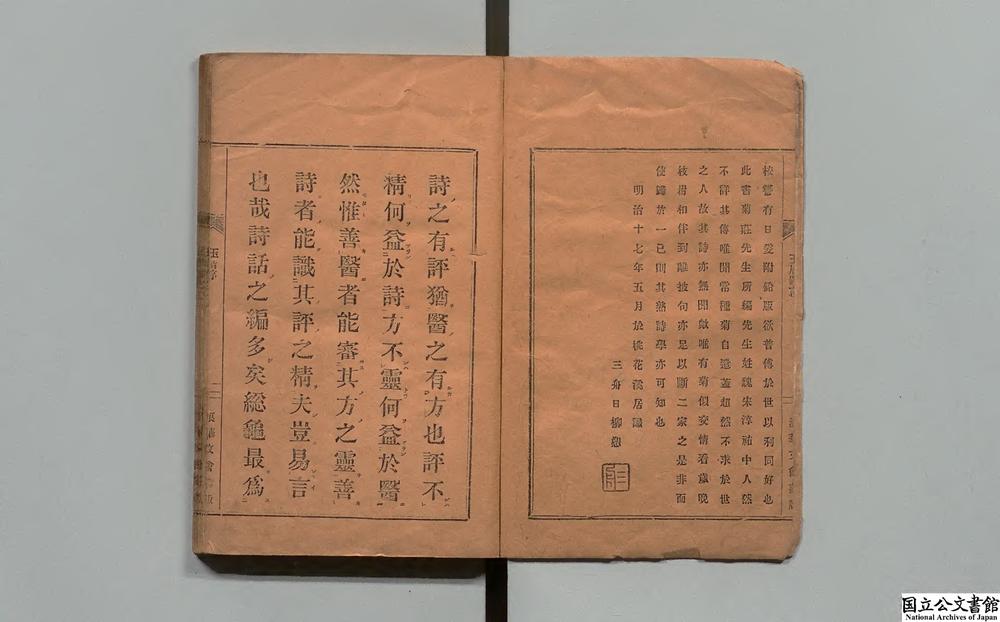 校讐有日爰附鉛版欲普傳於世以利同好也
此書菊莊先生所編先生姓魏宋淳祐中人然
不詳其傳唯聞常種菊自遣蓋超然不求於世
之人故其詩亦無聞獻唯有菊似交情看歲晚
枝擕相伴到離披句亦足以斷二家之是非而
使歸於一已則其熟詩學亦可知也
明治十七年五月於桃花溪居識
三舟日柳
詩之有評猶醫之有方也評不
精何益於詩方不靈何益於醫
然惟善醫者能審其方之靈善
詩者能識其評之精夫豈易言
也哉詩話之編多矣総龜最爲
玉屑序
二
国立公文書館
National Archives of Japan